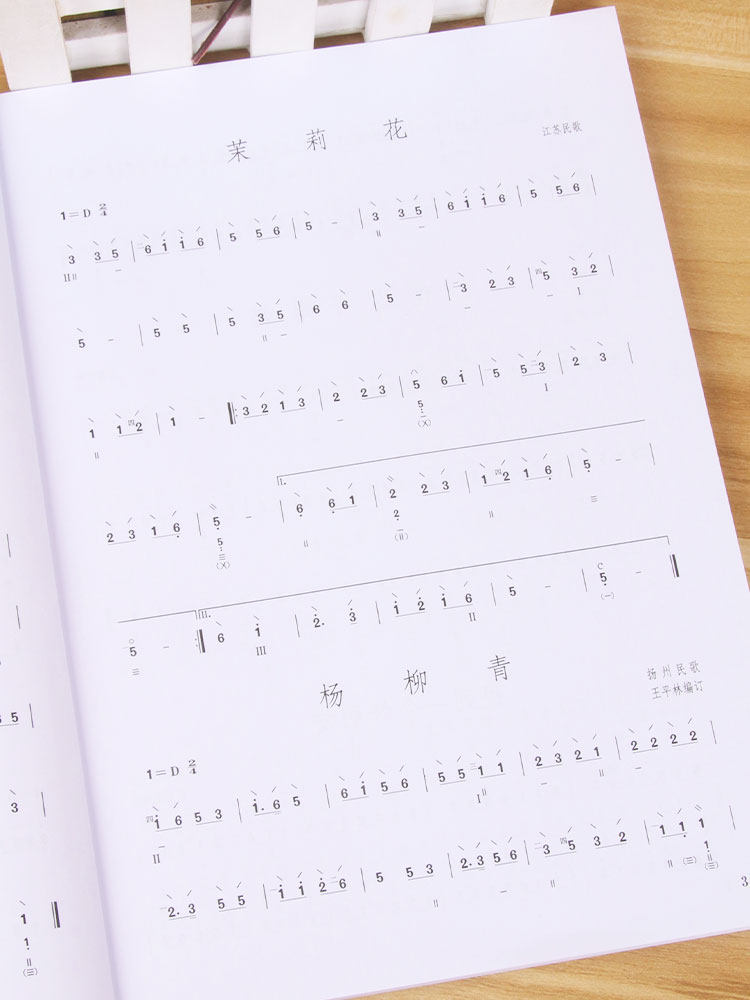 茉莉花
江苏民歌
1=D 2/4
3 3 5 | 6 i i 6 | 5 5 6 | 5 – | 3 3 5 | 6 i i 6 | 5 5 6 |
5 – | 5 5 | 5 3 5 | 6 6 | 5 – | 3 2 3 | 5 3 2 |
1 1 2 | 1 – ‖: 3 2 1 3 | 2 2 3 | 5 6 i | 5 5 3 | 2 3 |
I.
2 3 1 6 | 5 – | 6 6 1 | 2 2 3 | 1 2 1 6 | 5 – |
III.
5 – :‖ 6 i | 2. 3 | i 2 i 6 | 5 – | 5 – ‖
杨柳青
扬州民歌
王平林编订
1=D 2/4
i 6 5 3 | i. 6 5 | 6 i 5 6 | 5 5 1 1 | 2 3 2 1 | 2 2 2 2 |
2. 3 5 5 | i i 2 6 | 5 5 3 | 2. 3 5 6 | 3 5 3 2 | 1 1 1
3